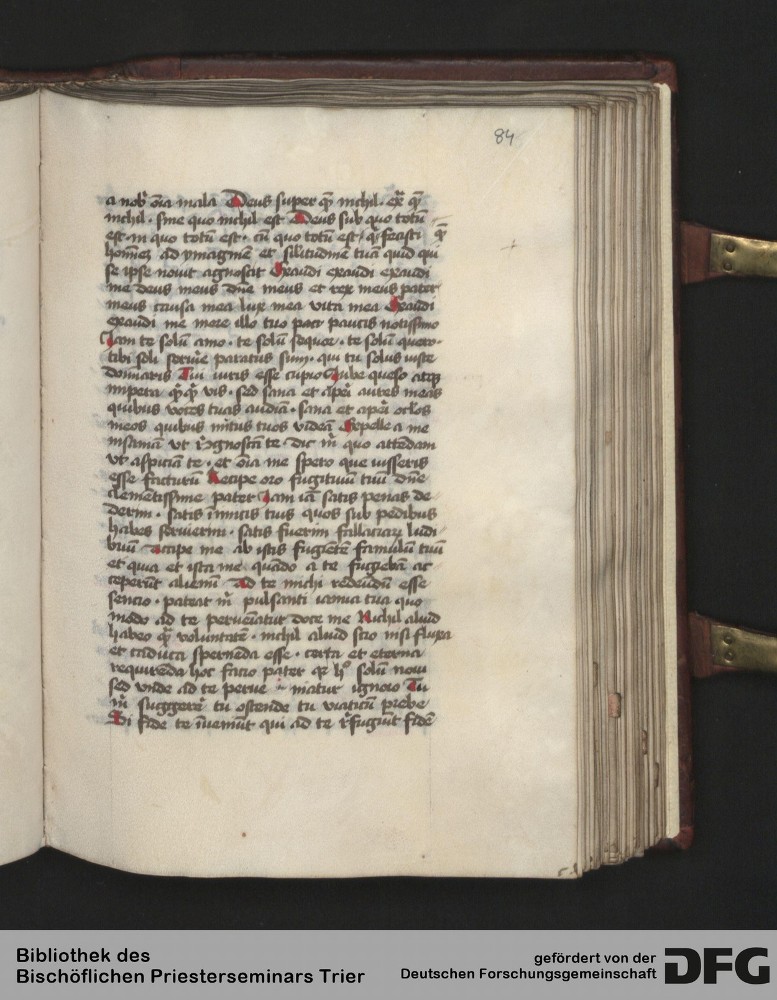 84
a nob̄ oīa mala Deus super q̄ nichil · ex̄ q̄
nichil · sine quo nichil est Deus sub quo totū
est · in quo totū est · cū quo totū est / q̄ fecisti
hoīnēs ad ymaginē et silitudinē tuā quid qui
se ipse nouit agnoscit Exaudi exaudi exaudi
me deus meus dn̄e meus et rex meus pater
meus causa mea lux mea vita mea Exaudi
exaudi me more illo tuo pauc paucis notissimo
Iam te solū amo · te solū sequor · te solū quero ·
tibi soli seruire paratus sum · qui tu solus iuste
dominaris Tui iuris esse cupio Iube queso atq̄
impera q̄q̄ vis · sed sana et aperi aures meas
quibus voces tuas audiā · sana et aperi oclos
meos quibus nutus tuos videā Expelle a me
insaniam vt r̄cognoscā te dic m̄ quo attēdam
vt aspiciā te · et oīa me spero que iusseris
esse facturū Recipe oro fugitiuū tuū dn̄e
clemētissime pater Iam iā satis penas de
derim · satis inimicis tuis quos sub pedibus
habes seruierim · satis fuerim fallaciarꝝ ludi
briū Accipe me ab istis fugiētē famulū tuū
et quia et isti me quādo a te fugiebā ac
ceperūt alienū Ad te michi redeūdū esse
sencio · pateat m̄ pulsanti ianua tua quo
modo ad te perueniatur doce me Nichil aliud
habeo q̄ voluntatē · nichil aliud scio nisi fluxa
et caduca spernēda esse · certa et eterna
requirēda hoc facio pater qꝛ hͦ solū noui
sed vnde ad te perue niatur ignoro Tu
m̄ suggere tu ostende tu viaticū prebe
Si fide te īueniūt qui ad te r̄fugiūt fidē
Bibliothek des
Bischöflichen Priesterseminars Trier
gefördert von der
Deutschen Forschungsgemeinschaft
DFG